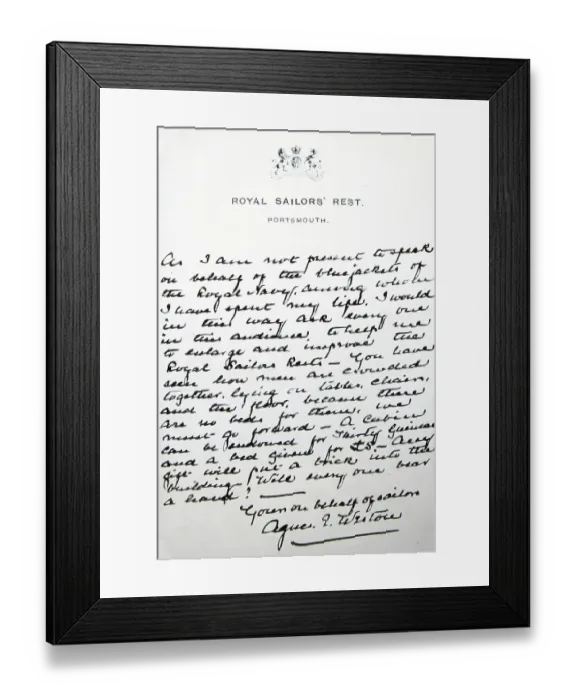 ROYAL SAILORS' REST.
PORTSMOUTH.
As I am not present to speak
on behalf of the bluejackets of
the Royal Navy, among whom
I have spent my life, I would
in this way ask every one
in this audience, to help me
to enlarge and improve the
Royal Sailors Rests — You have
seen how men are crowded
together, lying on tables, chairs,
and the floor, because there
are no beds for them, we
must go forward — A cabin
can be endowed for Thirty Guineas
and a bed given for £5 — Any
gift will put a brick into the
building — Will every one bear
a hand? —
Yours on behalf of sailors
Agnes E. Weston